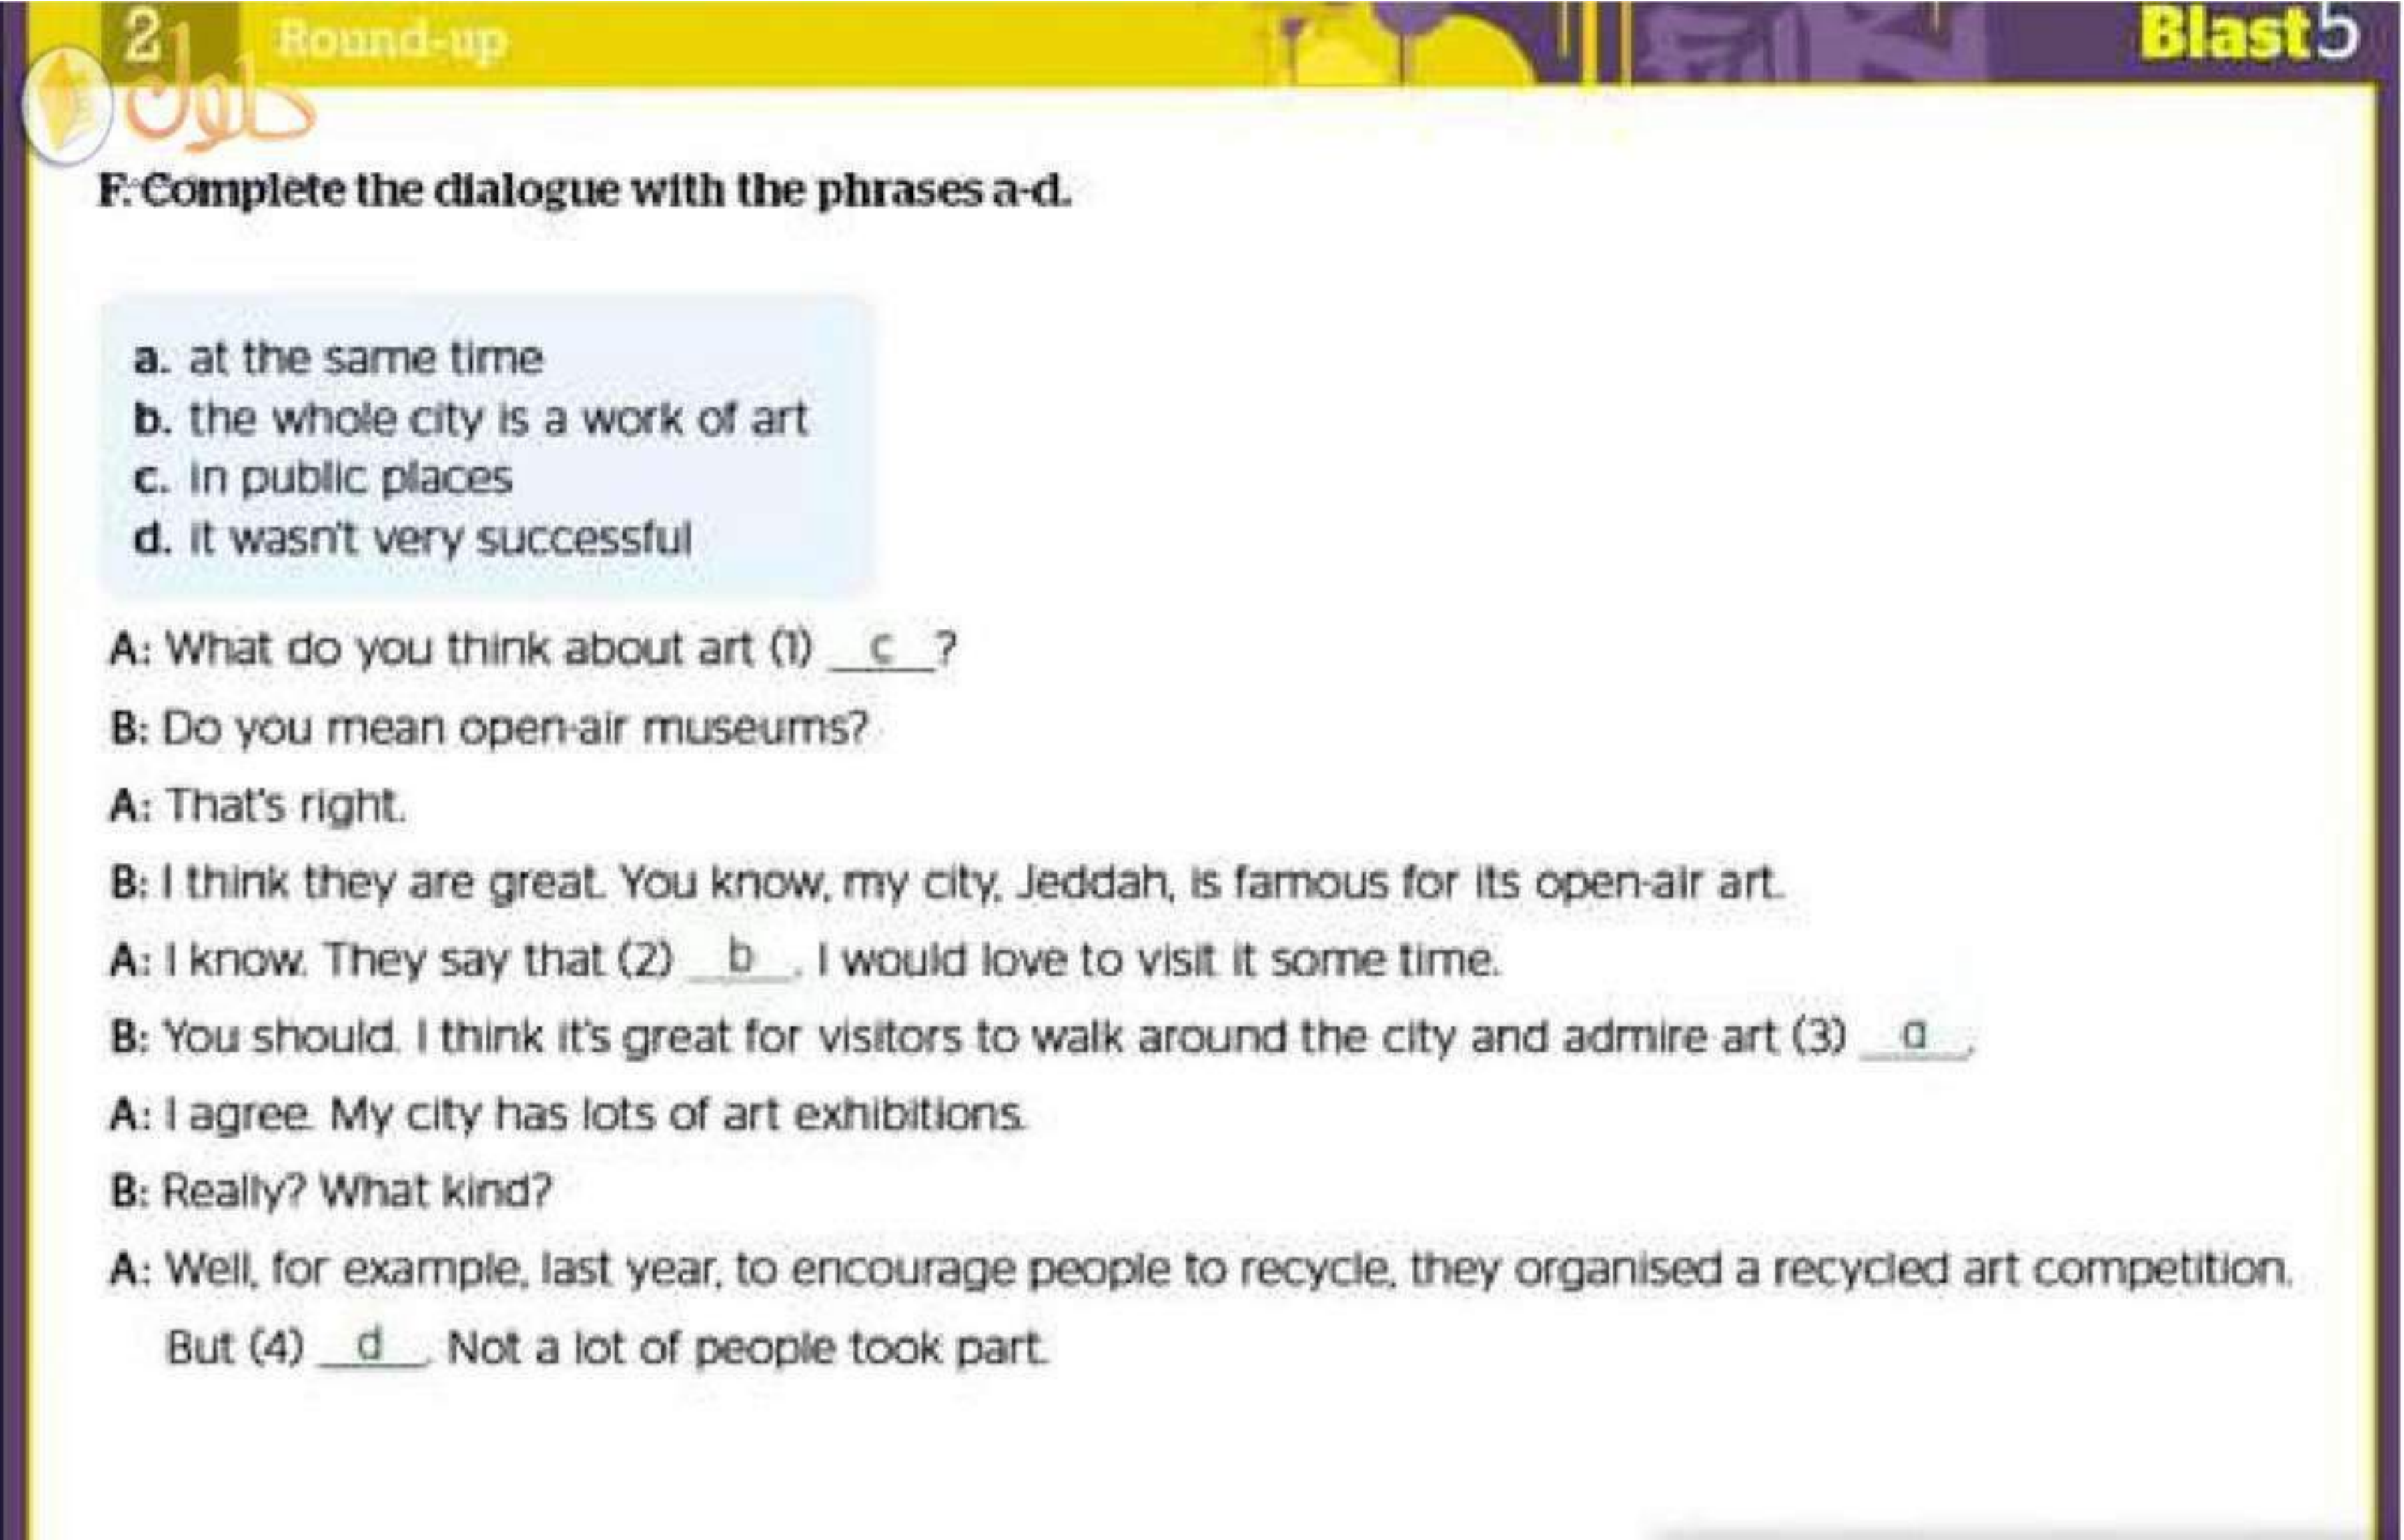 2 Round-up Blast 5
حلول
F. Complete the dialogue with the phrases a-d.
a. at the same time
b. the whole city is a work of art
c. in public places
d. it wasn't very successful
A: What do you think about art (1) __c__?
B: Do you mean open-air museums?
A: That's right.
B: I think they are great. You know, my city, Jeddah, is famous for its open-air art.
A: I know. They say that (2) __b__. I would love to visit it some time.
B: You should. I think it's great for visitors to walk around the city and admire art (3) __a__.
A: I agree. My city has lots of art exhibitions.
B: Really? What kind?
A: Well, for example, last year, to encourage people to recycle, they organised a recycled art competition.
But (4) __d__. Not a lot of people took part.